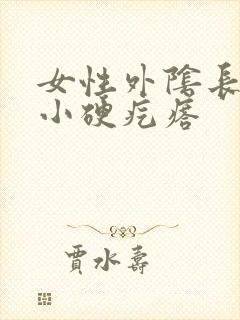 女性外陰長
小硬疙瘩
賈水壽